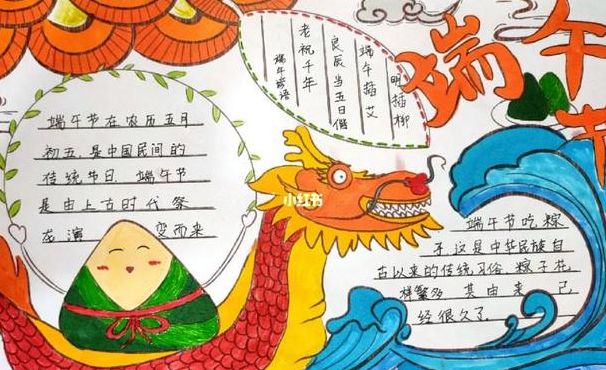 端午节
明插柳
端午插艾
良辰当五日偕
老祝千年
端午谚语
端午节在农历五月
初五,是中国民间的
传统节日 端午节
是由上古时代祭
龙演 变而来
小红书
端午节吃粽
子这是中华民族自
古以来的传统习俗 粽子花
样繁多 其由来 已
经很久了